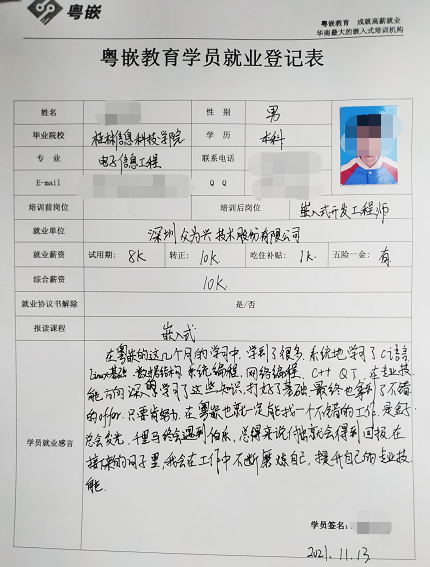 粤嵌
粤嵌教育 成就高薪就业
华南最大的嵌入式培训机构
粤嵌教育学员就业登记表
姓名 性别 男
毕业院校 桂林信息科技学院 学历 本科
专业 电子信息工程 联系电话
E-mail QQ
培训前岗位 培训后岗位 嵌入式开发工程师
就业单位 深圳众为兴技术股份有限公司
就业薪资 试用期: 8K 转正: 10K 吃住补贴: 1K 五险一金: 有
综合薪资 10K
就业协议书解除 是/否
报读课程 嵌入式
学员就业感言
在粤嵌的这几个月的学习中,学到了很多,系统地学习了C语言
Linux基础,数据结构,系统编程,网络编程,C++ QT,在专业技
能方向深入学习了这些知识,打好了基础,最终也拿到了不错
的offer.只要肯努力,在粤嵌也就一定能找一个不错的工作,是金子
总会发光,千里马终会遇到伯乐,总得来说付出就会得到回报,在
接下来的日子里,我会在工作中不断磨炼自己,提升自己的专业技
能.
学员签名:
2021.11.13